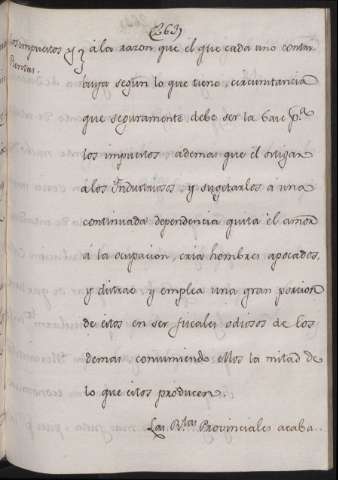 (263)
los impuestos y
Rentas.
à la razon que el que cada uno contri
buya segun lo que tiene, circunstancia
que seguramente debe ser la base pª
los impuestos, ademas que el obligar
álos Yndustriosos, y sugetarlos á una
continuada dependencia quita el amor
á la ocupacion, cria hombres apocados,
y distrae y emplea una gran porcion
de estos en ser fiscales odiosos de los
demas, consumiendo ellos la mitad de
lo que estos producen.
Las Rtas Provinciales acaba..